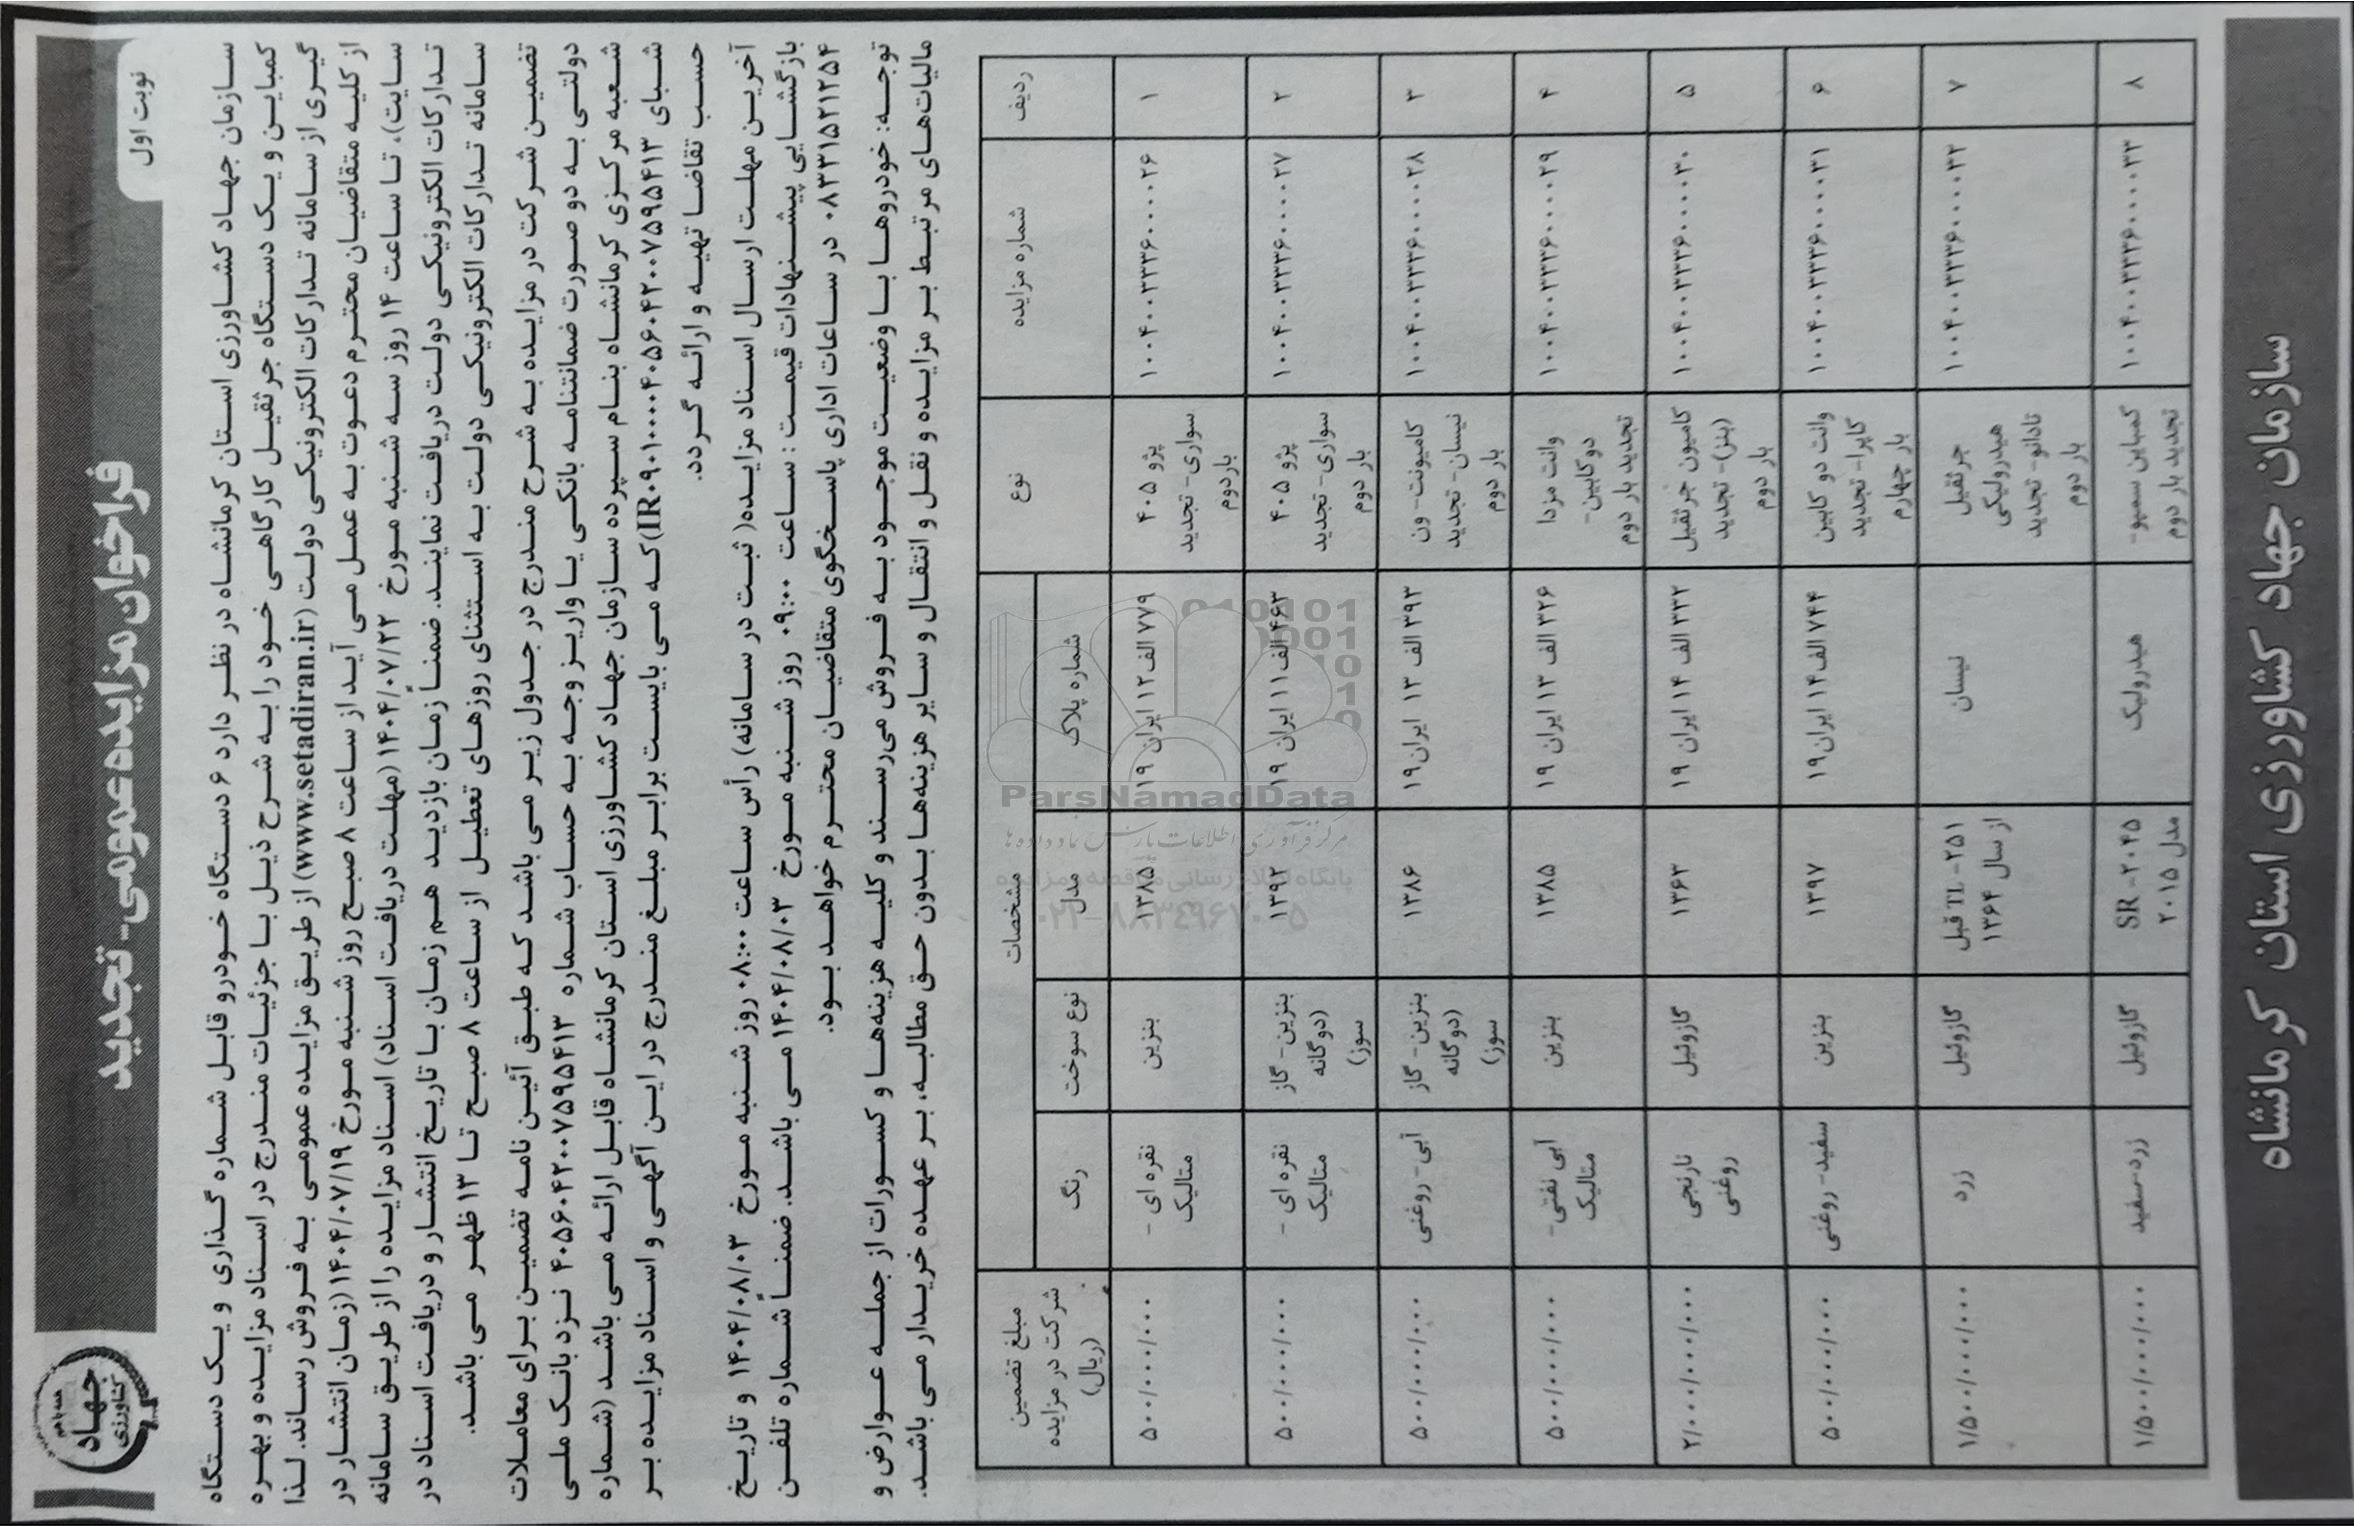 نوبت اول
فراخوان مزایده عمومی- تجدید
جهاد
کشاورزی
سازمان جهاد کشاورزی استان کرمانشاه در نظر دارد ۶ دستگاه خودرو قابل شماره گذاری و یک دستگاه
کمباین و یک دستگاه جرثقیل کارگاهی خود را به شرح ذیل با جزئیات مندرج در اسناد مزایده و بهره
گیری از سامانه تدارکات الکترونیکی دولت (www.setadiran.ir) از طریق مزایده عمومی به فروش رساند. لذا
از کلیه متقاضیان محترم دعوت به عمل می آید از ساعت ۸ صبح روز شنبه مورخ ۱۴۰۴/۰۷/۱۹ (زمان انتشار در
سایت)، تا ساعت ۱۴ روز سه شنبه مورخ ۱۴۰۴/۰۷/۲۲ (مهلت دریافت اسناد) اسناد مزایده را از طریق سامانه
تدارکات الکترونیکی دولت دریافت نمایند. ضمناً زمان بازدید هم زمان با تاریخ انتشار و دریافت اسناد در
سامانه تدارکات الکترونیکی دولت به استثنای روزهای تعطیل از ساعت ۸ صبح تا ۱۳ ظهر می باشد.
تضمین شرکت در مزایده به شرح مندرج در جدول زیر می باشد که طبق آئین نامه تضمین برای معاملات
دولتی به دو صورت ضمانتنامه بانکی یا واریز وجه به حساب شماره ۴۰۵۶۰۴۲۰۰۷۵۹۵۴۱۳ نزد بانک ملی
شعبه مرکزی کرمانشاه بنام سپرده سازمان جهاد کشاورزی استان کرمانشاه قابل ارائه می باشد (شماره
شبای IR۰۹۰۱۰۰۰۰۴۰۵۶۰۴۲۰۰۷۵۹۵۴۱۳) که می بایست برابر مبلغ مندرج در این آگهی و اسناد مزایده بر
حسب تقاضا تهیه و ارائه گردد.
آخرین مهلت ارسال اسناد مزایده( ثبت در سامانه) رأس ساعت ۰۸:۰۰ روز شنبه مورخ ۱۴۰۴/۰۸/۰۳ و تاریخ
بازگشایی پیشنهادات قیمت : ساعت ۰۹:۰۰ روز شنبه مورخ ۱۴۰۴/۰۸/۰۳ می باشد. ضمناً شماره تلفن
۰۸۳۳۱۵۲۱۲۵۴ در ساعات اداری پاسخگوی متقاضیان محترم خواهد بود.
توجه: خودروها با وضعیت موجود به فروش می‌رسند و کلیه هزینه‌ها و کسورات از جمله عوارض و
مالیات‌های مرتبط بر مزایده و نقل و انتقال و سایر هزینه‌ها بدون حق مطالبه، بر عهده خریدار می باشد.
ردیف شماره مزایده نوع مشخصات مبلغ تضمین شرکت در مزایده (ریال)
شماره پلاک مدل نوع سوخت رنگ
۱ ۱۰۰۴۰۰۳۳۳۶۰۰۰۰۲۶ پژو ۴۰۵ سواری- تجدید بار دوم ۷۷۹ الف ۱۲ ایران ۱۹ ۱۳۸۵ بنزین نقره ای - متالیک ۵۰۰/۰۰۰/۰۰۰
۲ ۱۰۰۴۰۰۳۳۳۶۰۰۰۰۲۷ پژو ۴۰۵ سواری- تجدید بار دوم ۴۶۳ الف ۱۱ ایران ۱۹ ۱۳۹۲ بنزین- گاز (دوگانه سوز) نقره ای - متالیک ۵۰۰/۰۰۰/۰۰۰
۳ ۱۰۰۴۰۰۳۳۳۶۰۰۰۰۲۸ کامیونت- ون نیسان- تجدید بار دوم ۳۹۳ الف ۱۳ ایران۱۹ ۱۳۸۶ بنزین- گاز (دوگانه سوز) آبی- روغنی ۵۰۰/۰۰۰/۰۰۰
۴ ۱۰۰۴۰۰۳۳۳۶۰۰۰۰۲۹ وانت مزدا دوکابین- تجدید بار دوم ۳۲۶ الف ۱۳ ایران ۱۹ ۱۳۸۵ بنزین آبی نفتی- متالیک ۵۰۰/۰۰۰/۰۰۰
۵ ۱۰۰۴۰۰۳۳۳۶۰۰۰۰۳۰ کامیون جرثقیل (بنز)- تجدید بار دوم ۳۳۲ الف ۱۴ ایران ۱۹ ۱۳۶۳ گازوئیل نارنجی روغنی ۲/۰۰۰/۰۰۰/۰۰۰
۶ ۱۰۰۴۰۰۳۳۳۶۰۰۰۰۳۱ وانت دو کابین کاپرا- تجدید بار چهارم ۷۴۴ الف۱۴ ایران۱۹ ۱۳۹۷ بنزین سفید- روغنی ۵۰۰/۰۰۰/۰۰۰
۷ ۱۰۰۴۰۰۳۳۳۶۰۰۰۰۳۲ جرثقیل هیدرولیکی تادانو- تجدید بار دوم نیسان TL -۲۵۱ قبل از سال ۱۳۶۴ گازوئیل زرد ۱/۵۰۰/۰۰۰/۰۰۰
۸ ۱۰۰۴۰۰۳۳۳۶۰۰۰۰۳۳ کمباین سمپو- تجدید بار دوم هیدرولیک SR -۲۰۴۵ مدل ۲۰۱۵ گازوئیل زرد-سفید ۱/۵۰۰/۰۰۰/۰۰۰
سازمان جهاد کشاورزی استان کرمانشاه
ParsNamadData
مرکز فرآوری اطلاعات پارس نماد داده ها
پایگاه اطلاع رسانی مناقصه و مزایده
۰۲۱-۸۸۳۴۹۶۷۰-۵